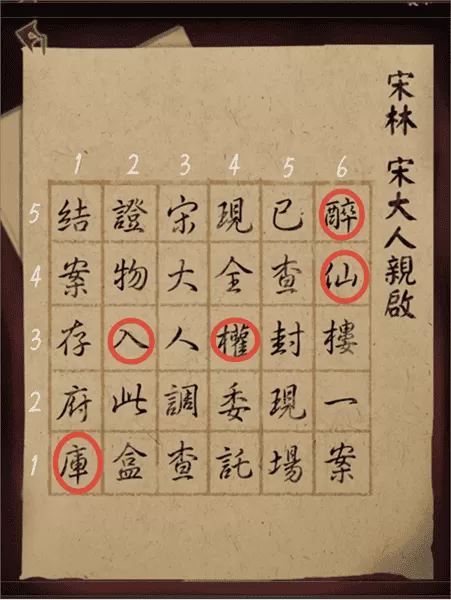 宋林 宋大人親啟
1 2 3 4 5 6
5
4
3
2
1
醉仙樓一案
已查封現場
現全權委託
宋大人調查
證物入此盒
結案存府庫